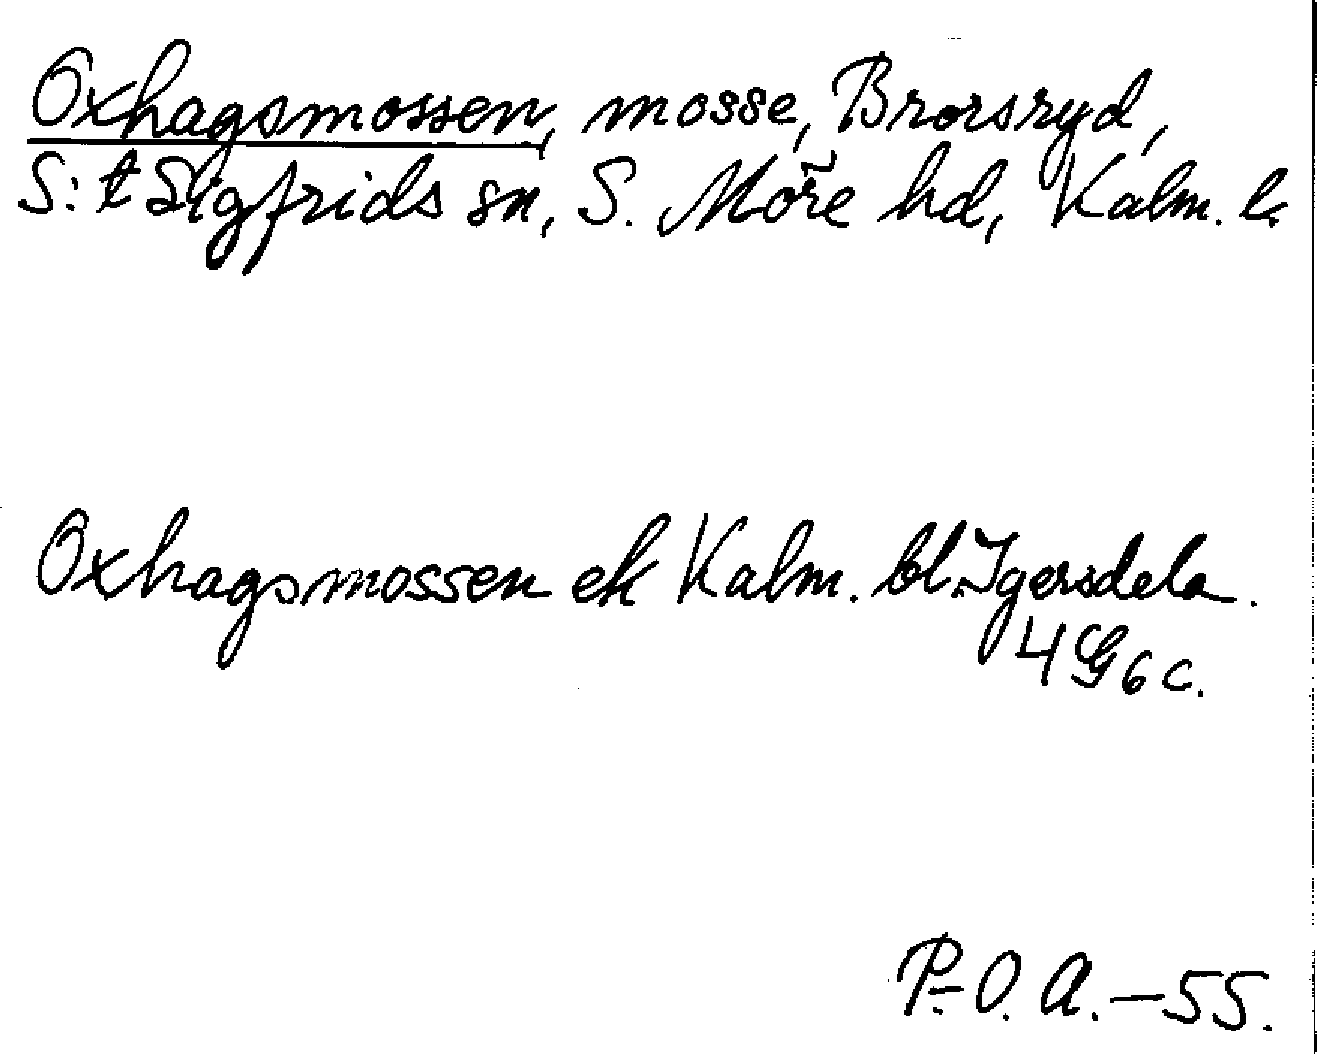 Oxhagsmossen, mosse, Brorsryd,
S:t Sigfrids sn, S. Möre hd, Kalm. l.
Oxhagsmossen ek Kalm. bl. Igersdela.
4G6c.
P.-O. A. — 55.